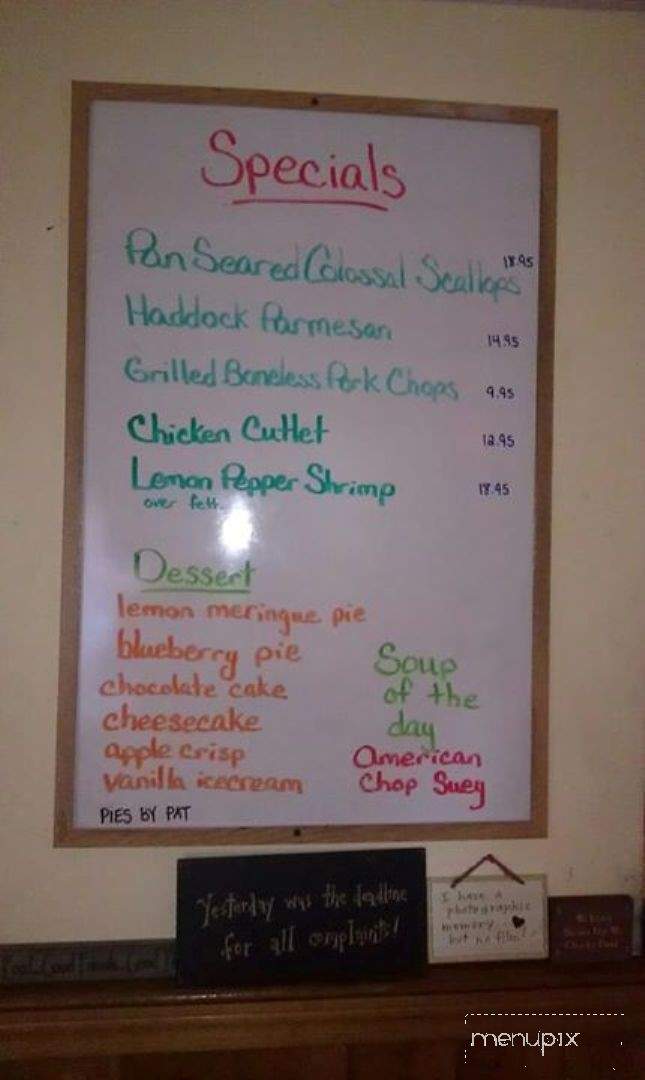 Specials
Pan Seared Colossal Scallops 18.95
Haddock Parmesan 14.95
Grilled Boneless Pork Chops 9.95
Chicken Cutlet 12.95
Lemon Pepper Shrimp 18.95
over fett..
Dessert
lemon meringue pie
blueberry pie
chocolate cake
cheesecake
apple crisp
vanilla icecream
PIES BY PAT
Soup
of the
day
American
Chop Suey
Yesterday was the deadline
for all complaints!
I have a
photographic
memory...
but no film!
menupix